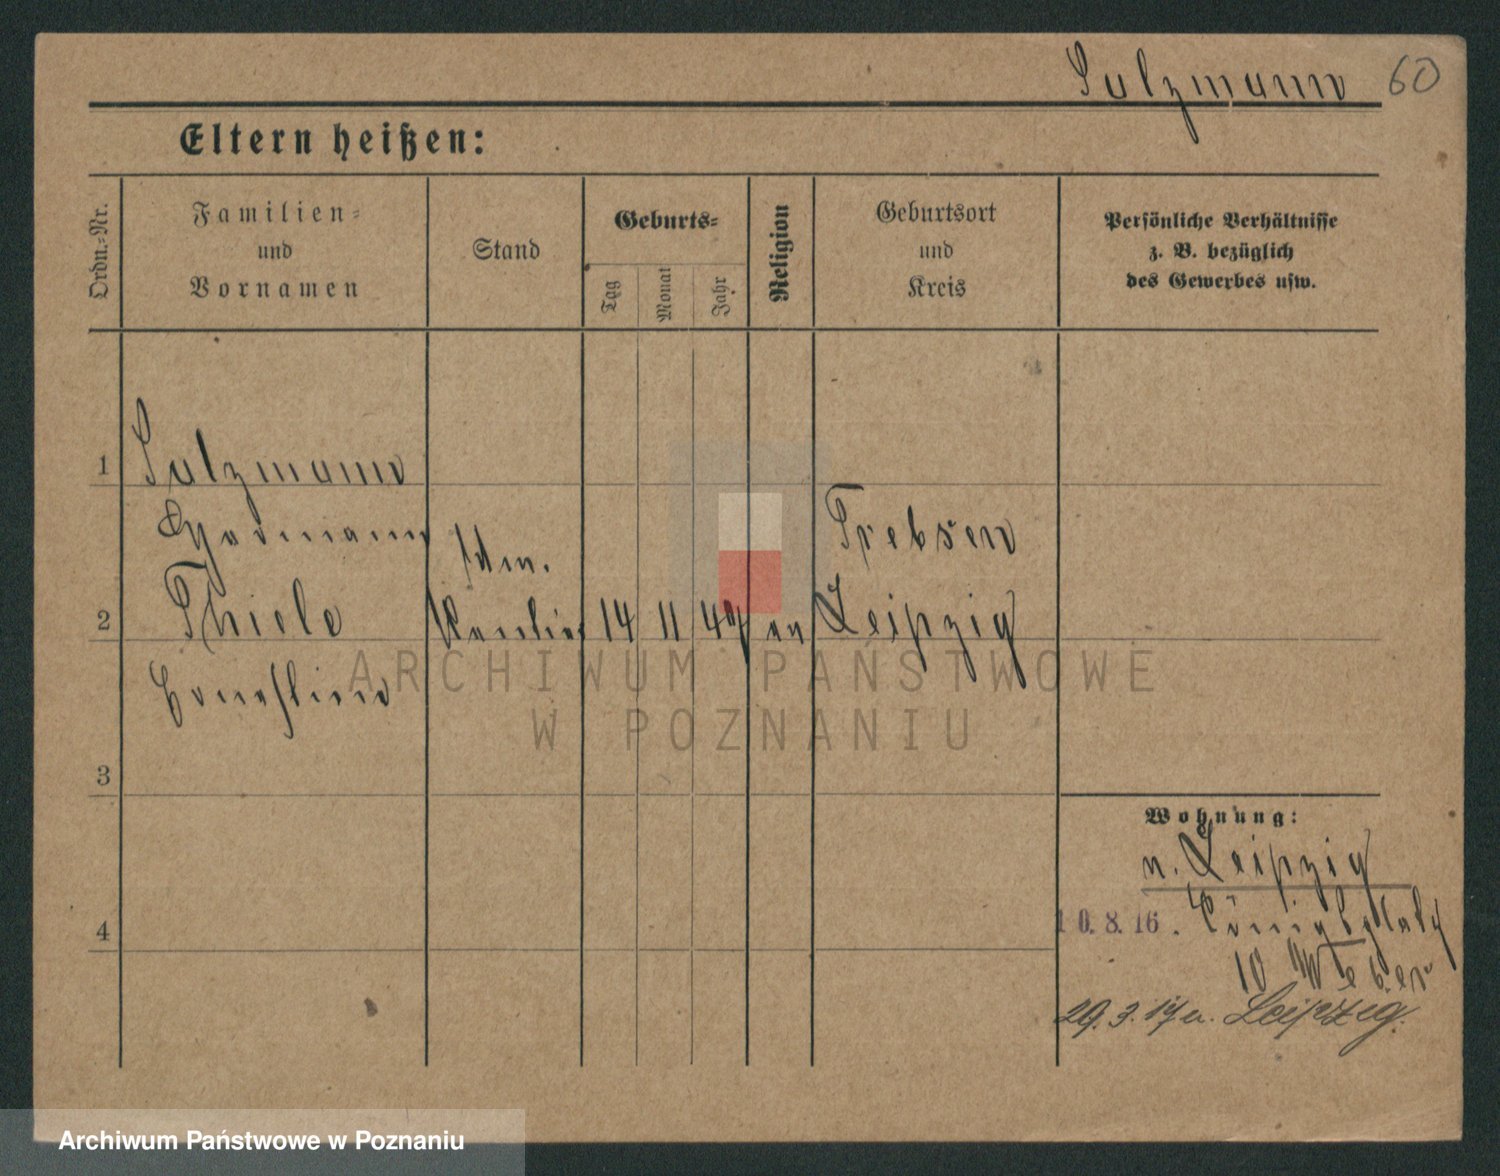 Salzmann 60
Eltern heißen:
Ordn.-Nr.
Familien-
und
Vornamen
Stand
Geburts-
Tag
Monat
Jahr
Religion
Geburtsort
und
Kreis
Persönliche Verhältnisse
z. B. bezüglich
des Gewerbes usw.
1 Salzmann
Hermann
Trebsen
2 Thiele 14 11 49 Leipzig
Ernestine
3
4
Wohnung:
n. Leipzig
10.8.16. Königsplatz
10 Weber
29.3.17 n. Leipzig.
ARCHIWUM PAŃSTWOWE
W POZNANIU
Archiwum Państwowe w Poznaniu